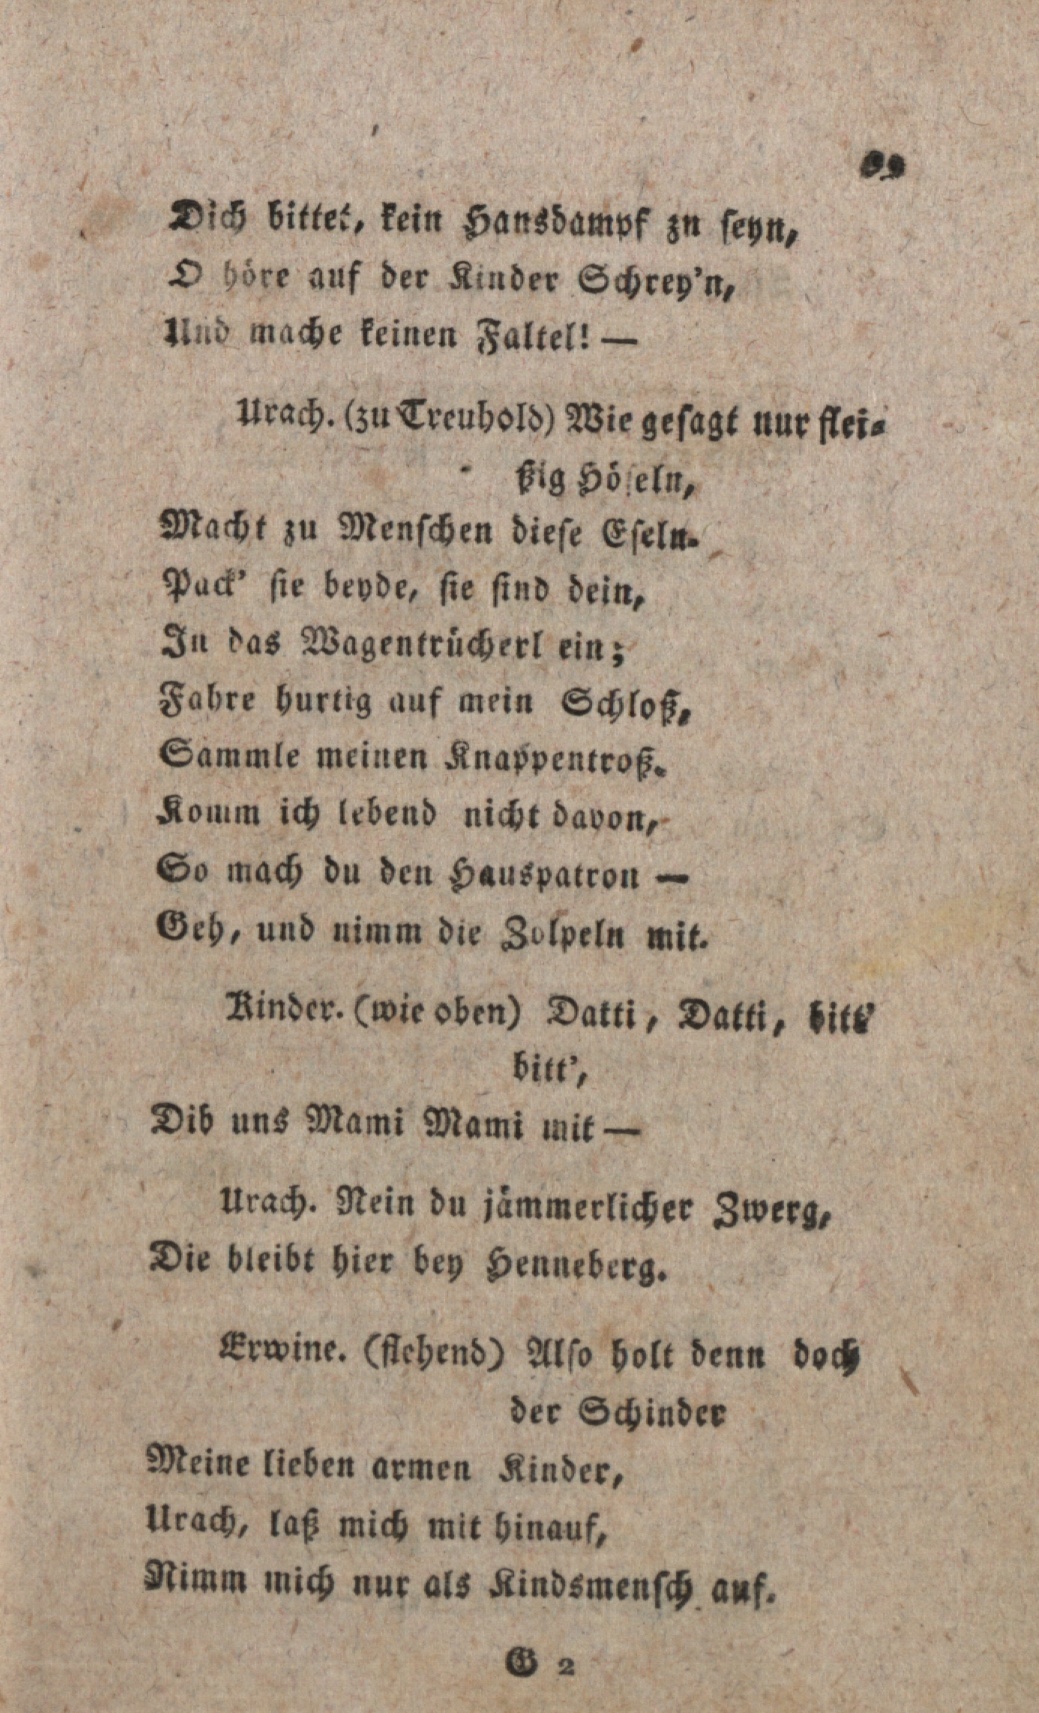 99
Dich bittet, kein Hansdampf zu seyn,
O höre auf der Kinder Schrey'n,
Und mache keinen Faltel! —
Urach. (zu Treuhold) Wie gesagt nur flei-
ßig Höseln,
Macht zu Menschen diese Eseln.
Pack' sie beyde, sie sind dein,
In das Wagentrücherl ein;
Fahre hurtig auf mein Schloß,
Sammle meinen Knappentroß.
Komm ich lebend nicht davon,
So mach du den Hauspatron —
Geh, und nimm die Zolpeln mit.
Kinder. (wie oben) Datti, Datti, bitt'
bitt',
Dib uns Mami Mami mit —
Urach. Nein du jämmerlicher Zwerg,
Die bleibt hier bey Henneberg.
Erwine. (flehend) Also holt denn doch
der Schinder
Meine lieben armen Kinder,
Urach, laß mich mit hinauf,
Nimm mich nur als Kindsmensch auf.
G 2